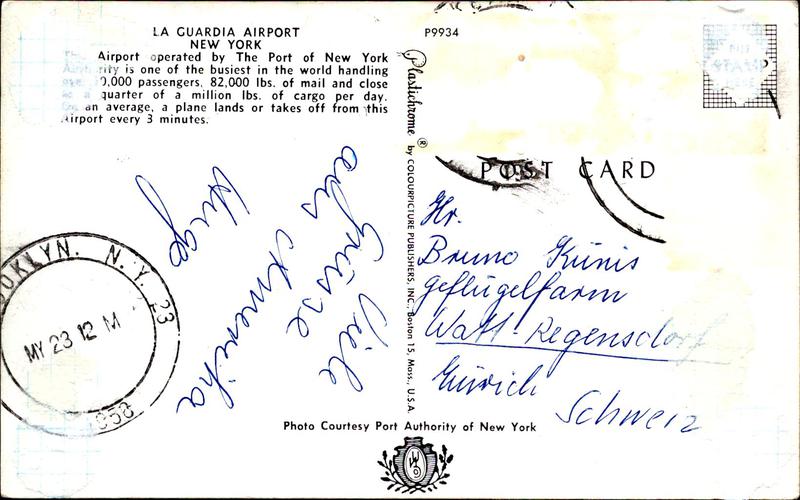 LA GUARDIA AIRPORT
NEW YORK
Airport operated by The Port of New York
is one of the busiest in the world handling
0,000 passengers, 82,000 lbs. of mail and close
quarter of a million lbs. of cargo per day.
an average, a plane lands or takes off from this
Airport every 3 minutes.
P9934
POST CARD
Plastichrome ® by COLOURPICTURE PUBLISHERS, INC., Boston 15, Mass., U.S.A.
Viele
Grüsse
aus
Amerika
Hugo
Hr.
Bruno Künis
Geflügelfarm
Watt-Regensdorf
Zürich
Schweiz
OOKLYN. N.Y. 23
MY 23 12 M
1958
Photo Courtesy Port Authority of New York